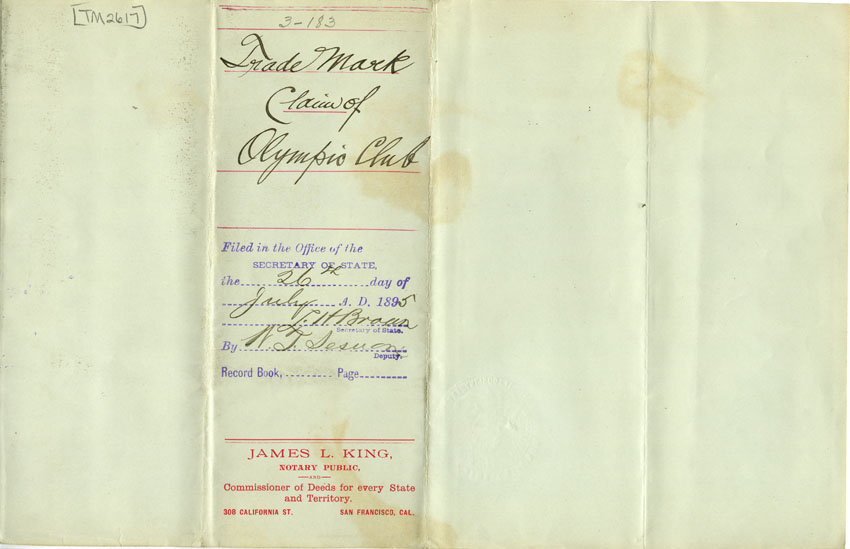 [TM2617]
3-183
Trade Mark
Claim of
Olympic Club
Filed in the Office of the
SECRETARY OF STATE,
the 26th day of
July A. D. 1895
Secretary of State.
By W. T. Sesnon
Deputy.
Record Book, Page
JAMES L. KING,
NOTARY PUBLIC,
—AND—
Commissioner of Deeds for every State
and Territory.
308 CALIFORNIA ST. SAN FRANCISCO, CAL.